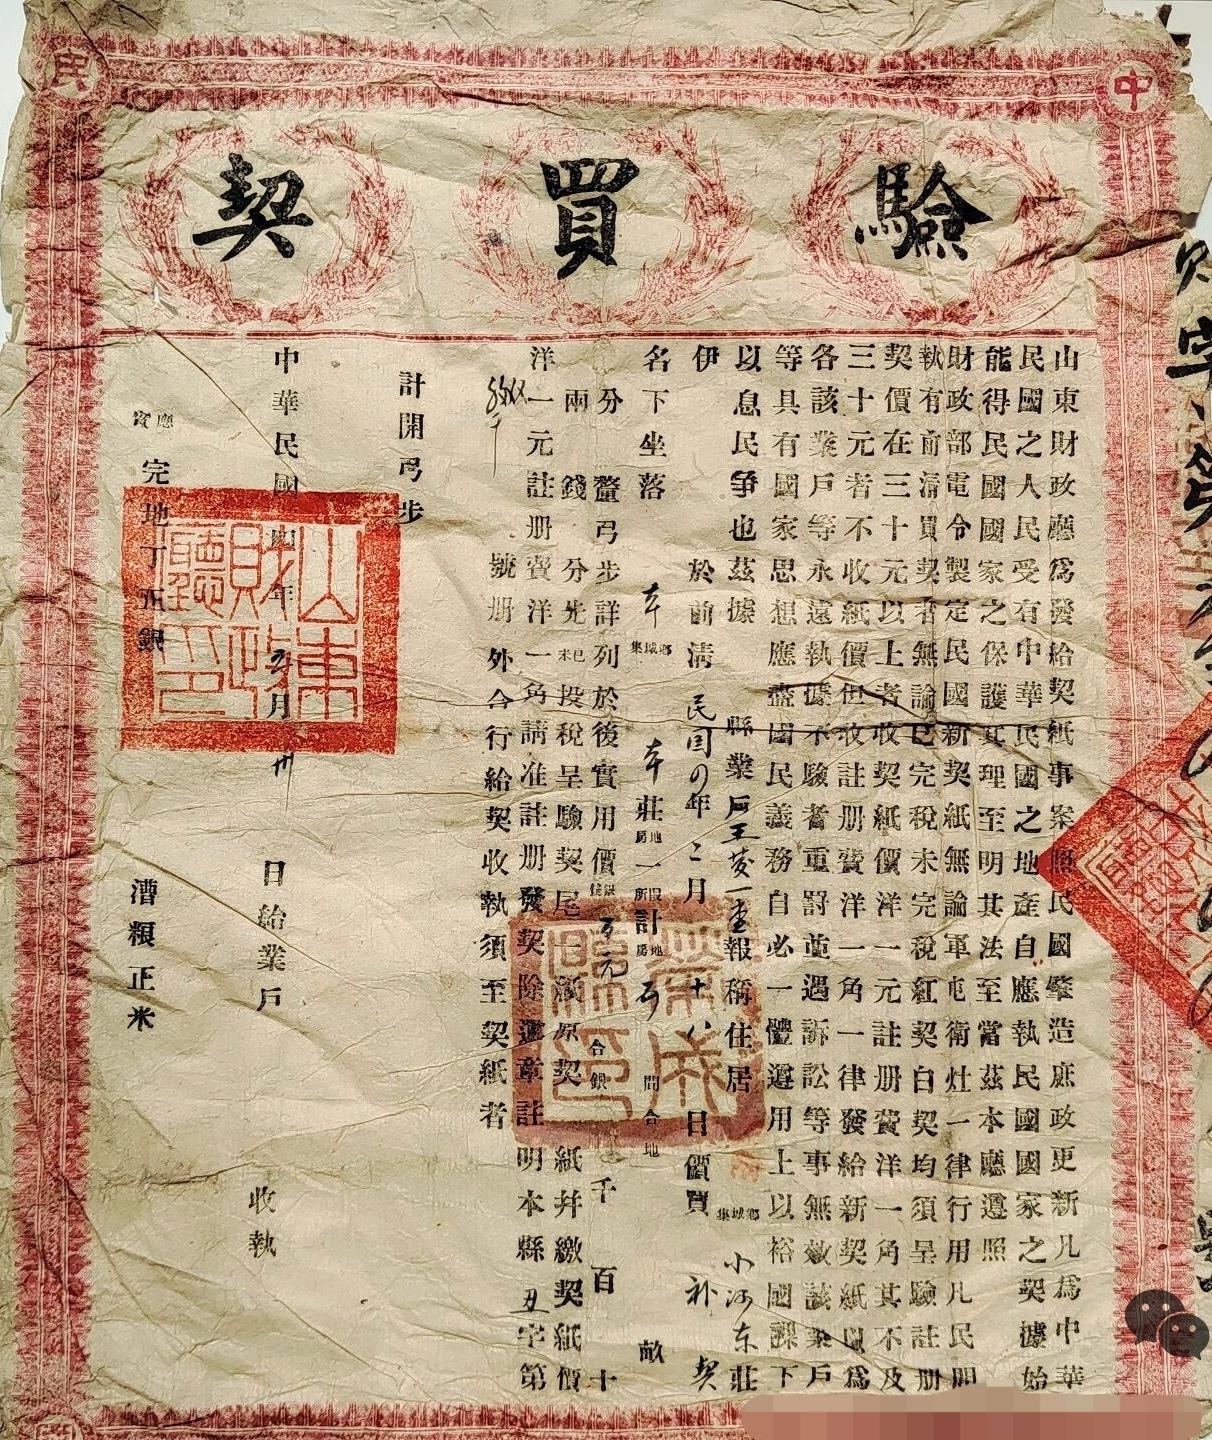 中
民
驗買契
山東財政廳爲發給契紙事案照民國肇造庶政更新凡爲中華
民國之人民受有中華民國之地產自應執民國國家之契據始
能得民國國家之保護其理至明其法至當茲本廳遵照
財政部電令製定民國新契紙無論軍屯衛灶一律行用凡民間
執有前清買契者無論已完稅未完稅紅契白契均須呈驗註册
契價在三十元以上者收契紙價洋一元註册費洋一角其不及
三十元者不收紙價但收註册費洋一角一律發給新契紙以爲
各該業戶等永遠執據不驗者重罰並遇訴訟等事無效該業戶
等具有國家思想應盡國民義務自必一體遵用上以裕國課下
以息民爭也茲據 縣業戶王 一 報稱住居 鄉城集 小河东莊
伊 於前清 民国四年二月十八日價買 补契
名下坐落 本 鄉城集 本莊 地房 一 段所 計 地房 间合地 畝
分釐弓步詳列於後實用價 銀錢 元 合銀 千百十
兩錢分先 已未 投稅呈驗契尾 原契 紙幷繳契紙價
洋一元註册費洋一角請准註册發契除遵章註明本縣丑字第
號册外合行給契收執須至契紙者
計開弓步
中華民國四年 月 卅 日給業戶 收執
應實 完地丁正銀 漕糧正米
山東財政廳印
榮成縣印
字第